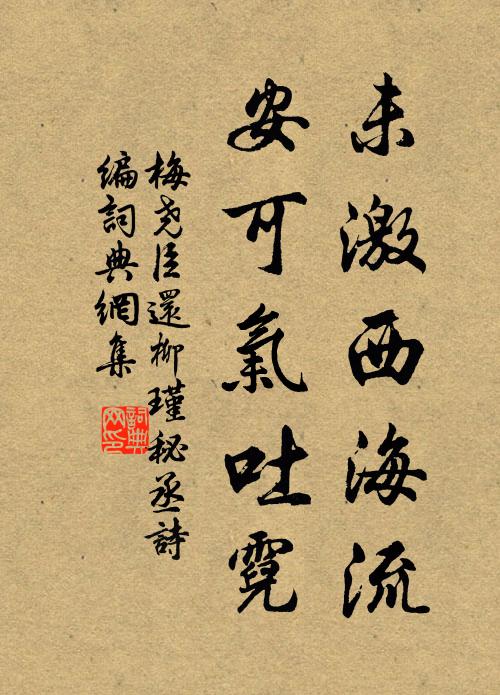 未激西海流
安可氣吐霓
梅堯臣還柳瑾秘丞詩
編詞典網集
詞典
网印